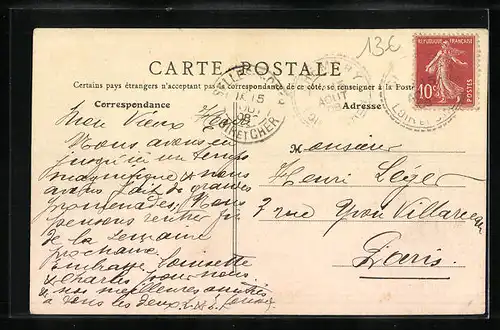 13€
CARTE POSTALE
Certains pays étrangers n'acceptant pas la correspondance de ce côté, se renseigner à la Poste
Correspondance
Adresse
RÉPUBLIQUE FRANÇAISE
10c
POSTES
AOUT
LOIR-ET-CHER
Mon Vieux Henri
Nous avons eu
jusqu'ici un temps
magnifique & nous
avons fait de grandes
promenades. Nous
pensons rentrer fin
de la semaine
prochaine
Embrasse Louisette
& Charles pour nous
& nos meilleures amitiés
à vous les deux
Monsieur
Henri Léger
2 rue Yvon Villarceau
Paris.